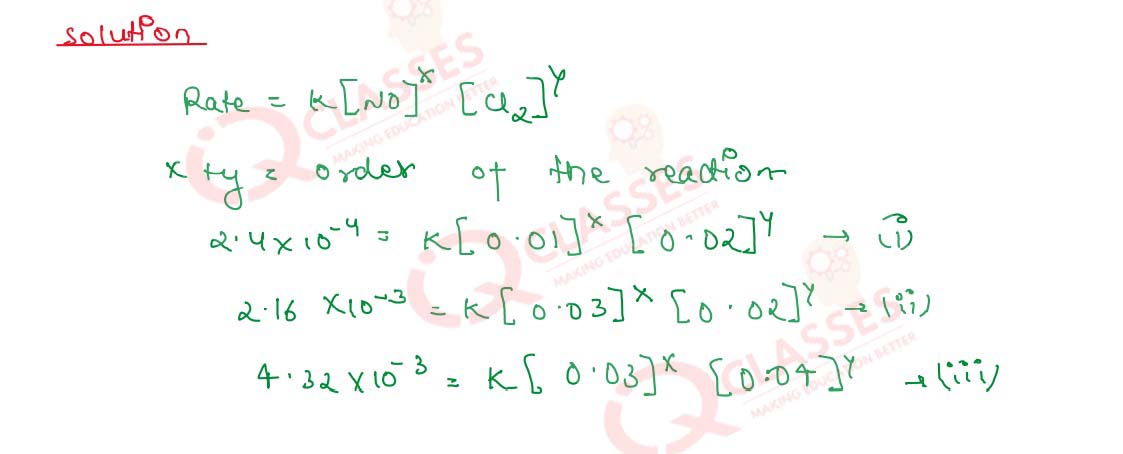 solution
Rate = K[NO]^x [Cl₂]^y
x+y = order of the reaction
2.4×10⁻⁴ = K[0.01]^x [0.02]^y → (i)
2.16 ×10⁻³ = K[0.03]^x [0.02]^y → (ii)
4.32×10⁻³ = K[0.03]^x [0.04]^y → (iii)
iQ CLASSES
MAKING EDUCATION BETTER
iQ CLASSES
MAKING EDUCATION BETTER
iQ CLASSES
MAKING EDUCATION BETTER